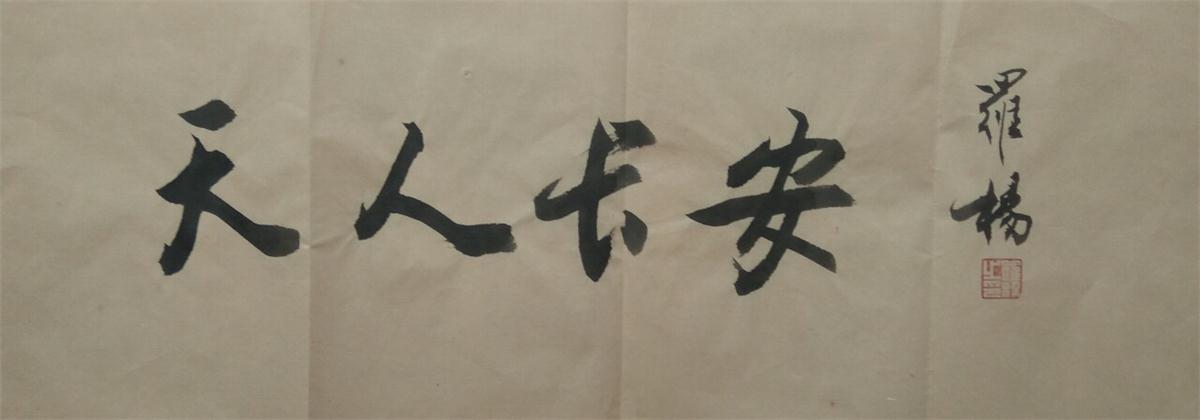 天人长安
羅楊